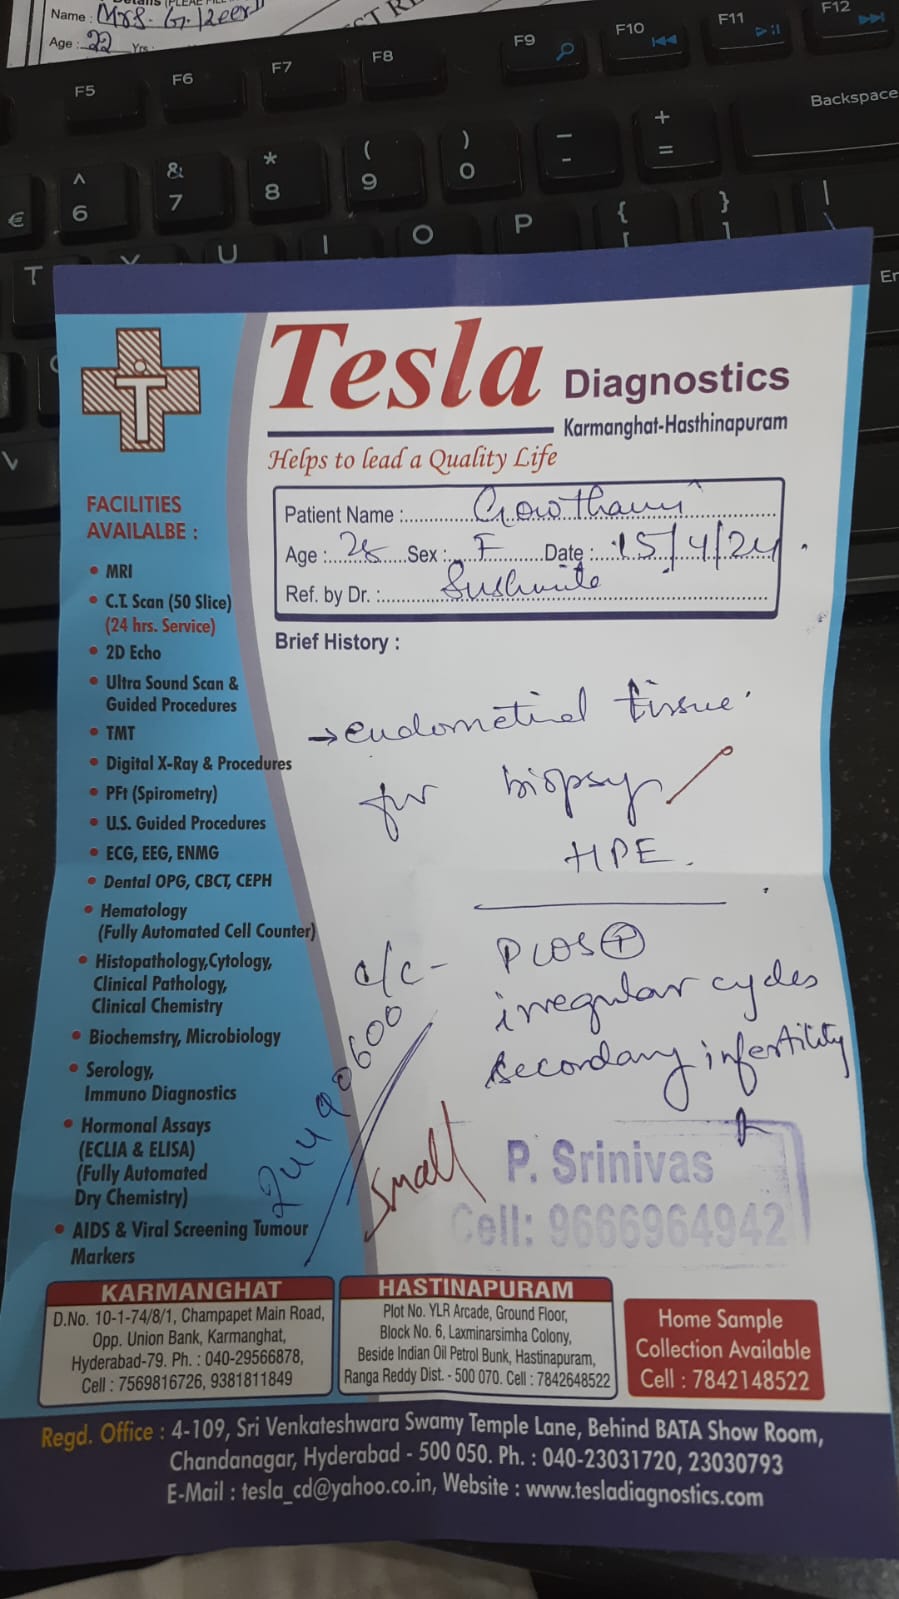 Name : Mrs. G.
Age : 22 Yrs
F5 F6 F7 F8 F9 F10 F11 F12
Backspace
^ & * ( ) _ +
€ 6 7 8 9 0 - =
T Y U I O P { [ } ] | \
V
T
Tesla Diagnostics
Karmanghat-Hasthinapuram
Helps to lead a Quality Life
Patient Name : Gowthami
Age : 28 Sex : F Date : 15/4/24
Ref. by Dr. :
Brief History :
→ endometrial tissue
for biopsy
HPE.
c/c - PCOS +
irregular cycles
secondary infertility
small
P. Srinivas
Cell: 9666964942
FACILITIES
AVAILALBE :
• MRI
• C.T. Scan (50 Slice)
(24 hrs. Service)
• 2D Echo
• Ultra Sound Scan &
Guided Procedures
• TMT
• Digital X-Ray & Procedures
• PFt (Spirometry)
• U.S. Guided Procedures
• ECG, EEG, ENMG
• Dental OPG, CBCT, CEPH
• Hematology
(Fully Automated Cell Counter)
• Histopathology,Cytology,
Clinical Pathology,
Clinical Chemistry
• Biochemstry, Microbiology
• Serology,
Immuno Diagnostics
• Hormonal Assays
(ECLIA & ELISA)
(Fully Automated
Dry Chemistry)
• AIDS & Viral Screening Tumour
Markers
KARMANGHAT
D.No. 10-1-74/8/1, Champapet Main Road,
Opp. Union Bank, Karmanghat,
Hyderabad-79. Ph. : 040-29566878,
Cell : 7569816726, 9381811849
HASTINAPURAM
Plot No. YLR Arcade, Ground Floor,
Block No. 6, Laxminarsimha Colony,
Beside Indian Oil Petrol Bunk, Hastinapuram,
Ranga Reddy Dist. - 500 070. Cell : 7842648522
Home Sample
Collection Available
Cell : 7842148522
Regd. Office : 4-109, Sri Venkateshwara Swamy Temple Lane, Behind BATA Show Room,
Chandanagar, Hyderabad - 500 050. Ph. : 040-23031720, 23030793
E-Mail : tesla_cd@yahoo.co.in, Website : www.tesladiagnostics.com